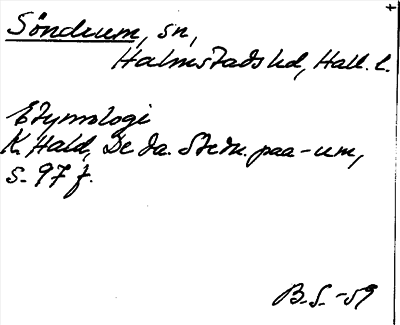 Söndrum, sn,
Halmstads hd, Hall. l.
Etymologi
K. Hald, De da. Stedn. paa -um,
s. 97 f.
B.S. -59